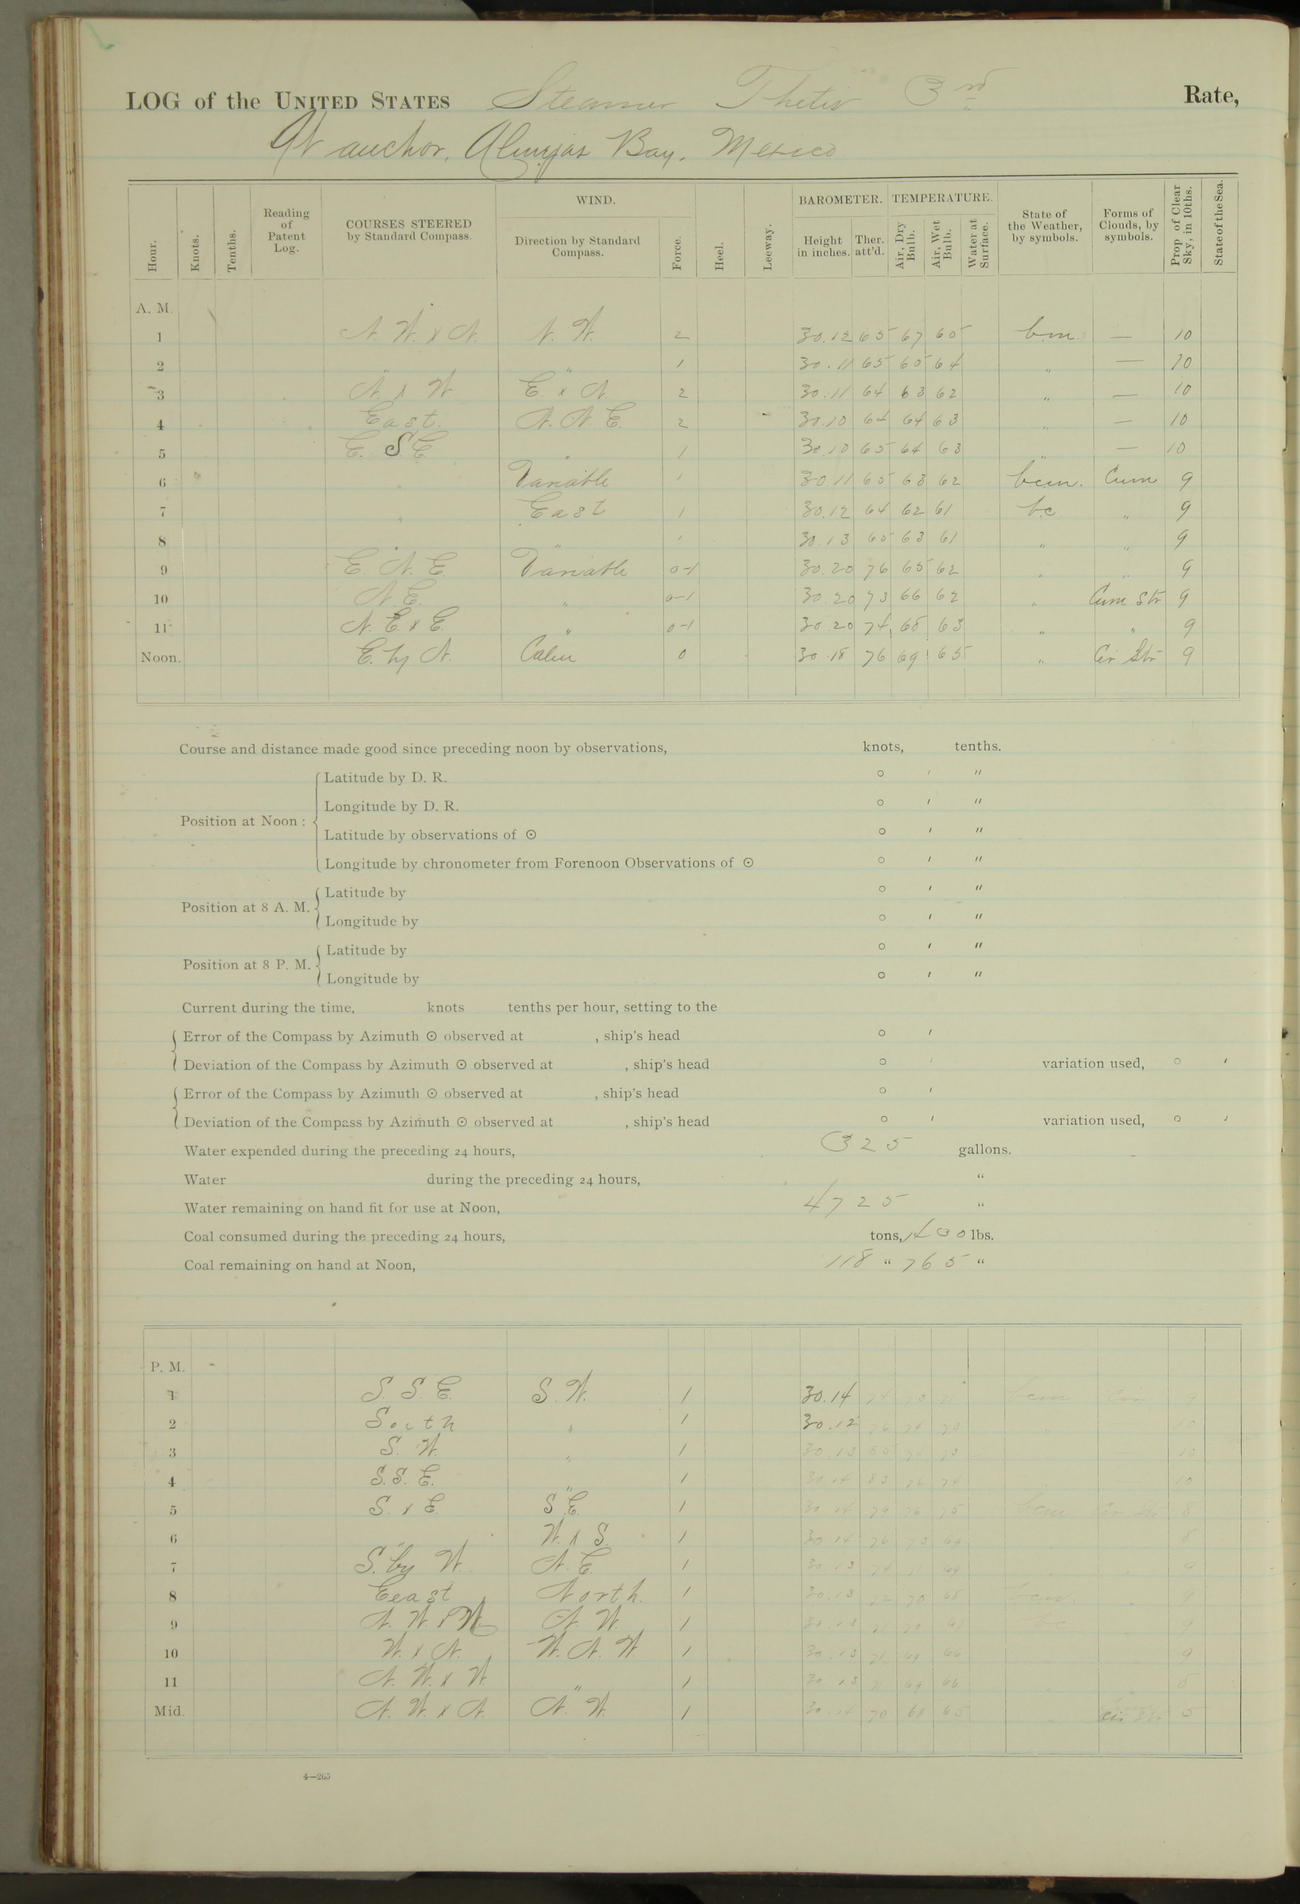 LOG of the UNITED STATES Steamer Thetis 3rd Rate,
At anchor, Almejas Bay, Mexico
Hour. Knots. Tenths. Reading of Patent Log. COURSES STEERED by Standard Compass. WIND. Direction by Standard Compass. Force. Heel. Leeway. BAROMETER. Height in inches. Ther. att'd. TEMPERATURE. Air, Dry Bulb. Air, Wet Bulb. Water at Surface. State of the Weather, by symbols. Forms of Clouds, by symbols. Prop. of Clear Sky, in 10ths. State of the Sea.
A. M.
1 N. W. x N. N. W. 2 30.12 65 67 65 bm — 10
2 " " 1 30.11 65 65 64 " — 10
3 N x W E x N 2 30.11 64 63 62 " — 10
4 East. N. N. E. 2 30.10 64 64 63 " — 10
5 E. S E " 1 30.10 65 64 63 " — 10
6 " Variable 1 30.11 65 63 62 bcm. Cum 9
7 " East 1 30.12 64 62 61 bc " 9
8 " " 1 30.13 65 63 61 " " 9
9 E. N. E Variable 0-1 30.20 76 65 62 " " 9
10 N E. " 0-1 30.20 73 66 62 " Cum Str 9
11 N. E x E. " 0-1 30.20 74 65 63 " " 9
Noon. E. by N. Calm 0 30.18 76 69 65 " Cir Str 9
Course and distance made good since preceding noon by observations, knots, tenths.
Position at Noon:
Latitude by D. R. ° ′ ″
Longitude by D. R. ° ′ ″
Latitude by observations of ⊙ ° ′ ″
Longitude by chronometer from Forenoon Observations of ⊙ ° ′ ″
Position at 8 A. M.
Latitude by ° ′ ″
Longitude by ° ′ ″
Position at 8 P. M.
Latitude by ° ′ ″
Longitude by ° ′ ″
Current during the time, knots tenths per hour, setting to the
Error of the Compass by Azimuth ⊙ observed at , ship's head ° ′
Deviation of the Compass by Azimuth ⊙ observed at , ship's head ° ′ variation used, ° ′
Error of the Compass by Azimuth ⊙ observed at , ship's head ° ′
Deviation of the Compass by Azimuth ⊙ observed at , ship's head ° ′ variation used, ° ′
Water expended during the preceding 24 hours, 325 gallons.
Water during the preceding 24 hours, "
Water remaining on hand fit for use at Noon, 4725 "
Coal consumed during the preceding 24 hours, tons, 1400 lbs.
Coal remaining on hand at Noon, 118 " 765 "
P. M.
1 S. S. E. S. W. 1 30.14
2 South " 1 30.12
3 S. W. " 1 30.13
4 S. S. E. " 1 30.14 83 76 74 10
5 S. x E. S E. 1 30.14 79 76 75 8
6 " W. x S. 1 30.14 76 73 69 8
7 S. by W. N. E. 1 30.13 9
8 Eeast North. 1 30.13 72 70 68 9
9 N. W. x W N. W. 1 30.13 9
10 W. x N. W. N. W 1 30.13 71 69 66 9
11 N. W. x W " 1 30.13 69 66
Mid. N. W. x N. N. W. 1 30.14 70 65 5
4—265